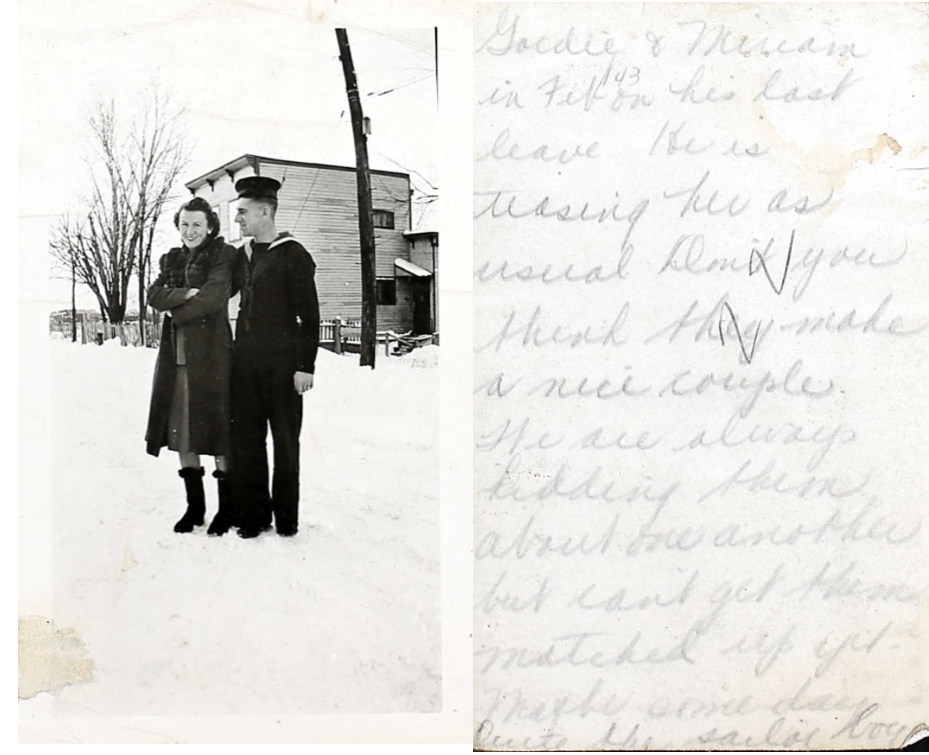 Gordie & Miriam
in Feb '43 on his last
leave He is
teasing her as
usual Don't you
think they make
a nice couple.
We are always
kidding them
about one another
but can't get them
matched up yet.
Maybe some day
the sailor boy